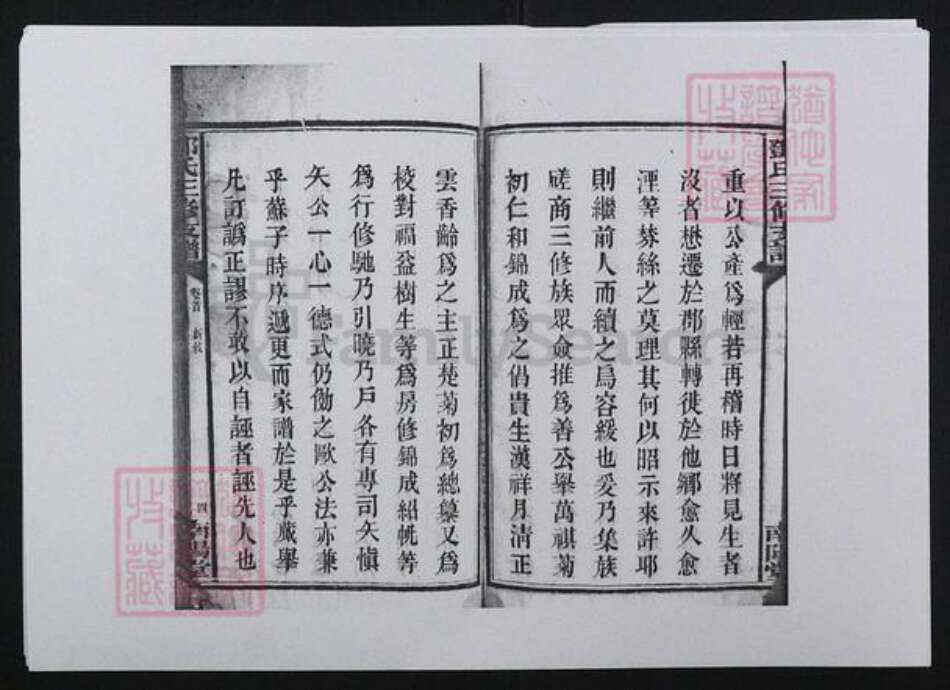 鄧氏三修支譜
重以公產爲輕若再稽時日將見生者
沒者懋遷於郡縣轉徙於他鄉愈久愈
湮等棼絲之莫理其何以昭示來許耶
則繼前人而續之烏容緩也爰乃集族
磋商三修族眾僉推爲善公舉萬祺菊
初仁和錦成爲之倡貴生漢祥月清正
南陽堂
雲香齡爲之主正楚菊初爲總纂又爲
校對福益樹生等爲房修錦成紹帨等
爲行修馳乃引曉乃戶各有專司矢愼
矢公一心一德式仍倣之歐公法亦兼
乎蘇子時序遞更而家譜於是乎蕆舉
凡訂譌正謬不敢以自誣者誣先人也
鄧氏三修支譜
卷首
四
南陽堂
FamilySearch